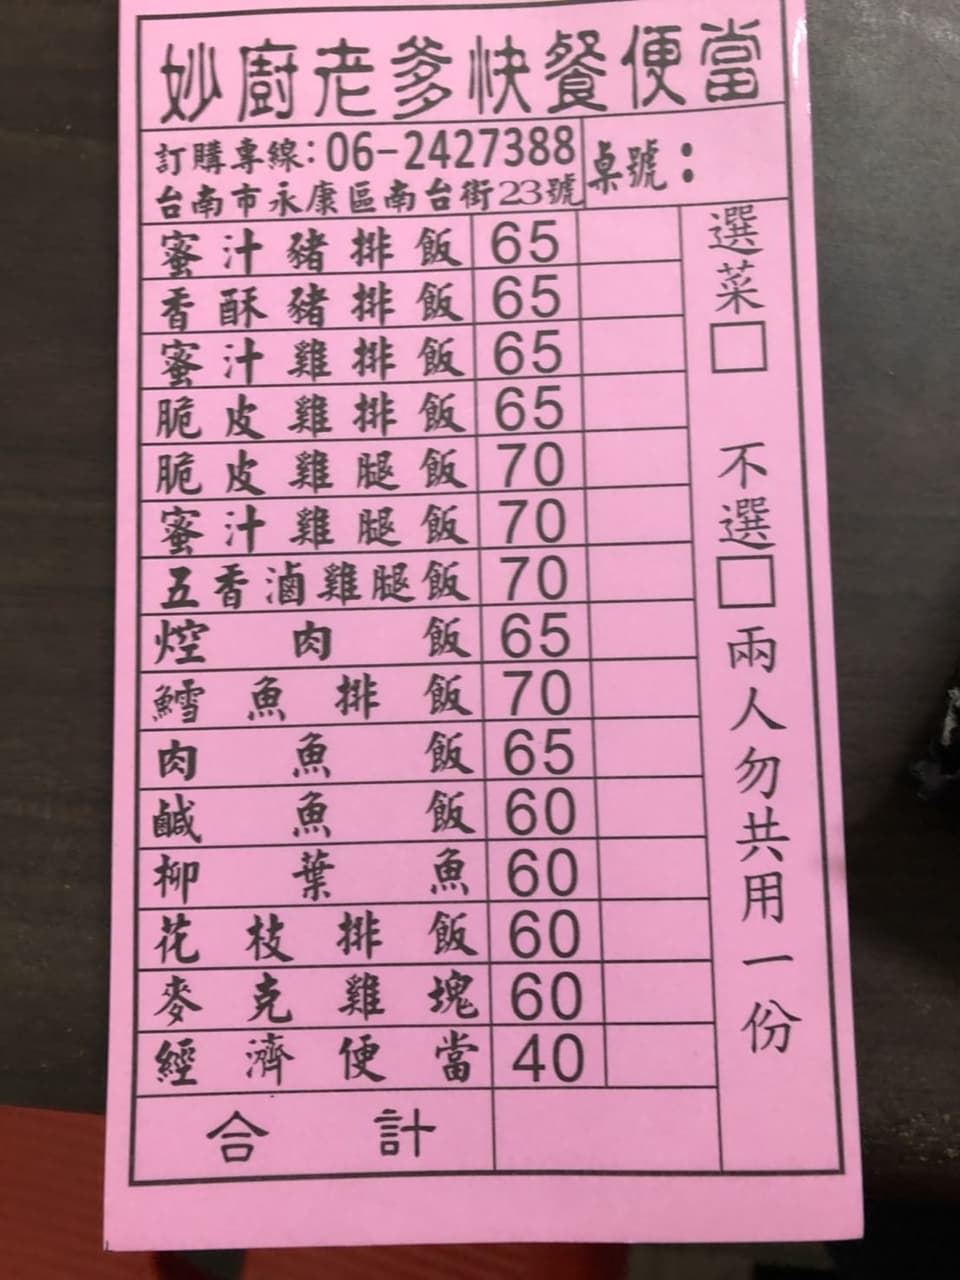 妙廚老爹快餐便當
訂購專線:06-2427388
台南市永康區南台街23號
桌號:
蜜汁豬排飯 65
香酥豬排飯 65
蜜汁雞排飯 65
脆皮雞排飯 65
脆皮雞腿飯 70
蜜汁雞腿飯 70
五香滷雞腿飯 70
焢肉飯 65
鱈魚排飯 70
肉魚飯 65
鹹魚飯 60
柳葉魚 60
花枝排飯 60
麥克雞塊 60
經濟便當 40
合計
選菜□ 不選□兩人勿共用一份